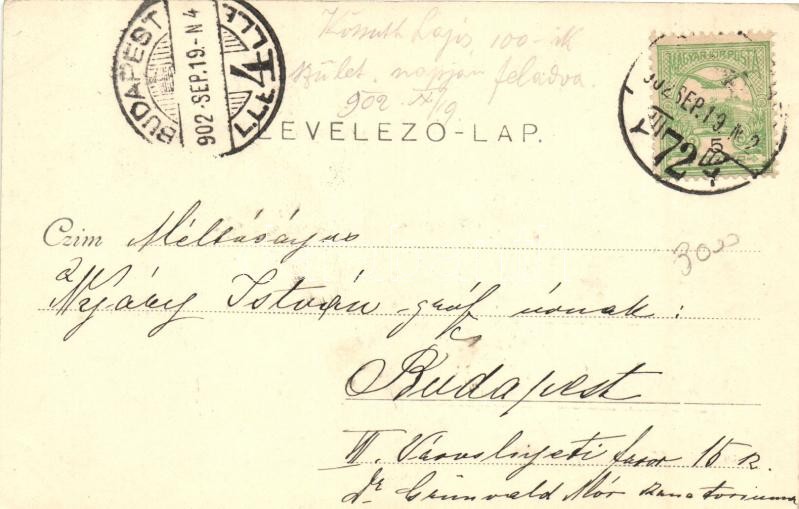 Kossuth Lajos 100-ik
szület. napján feladva
902 IX/19
BUDAPEST
902 SEP. 19 - N 4
MAGYAR KIR. POSTA
902 SEP. 19. N 2
72
5
LEVELEZŐ-LAP.
Czim Méltóságos
3000
Nyáry István gróf úrnak:
Budapest
Városligeti fasor 15 sz.
Dr Grünwald Mór sanatoriuma